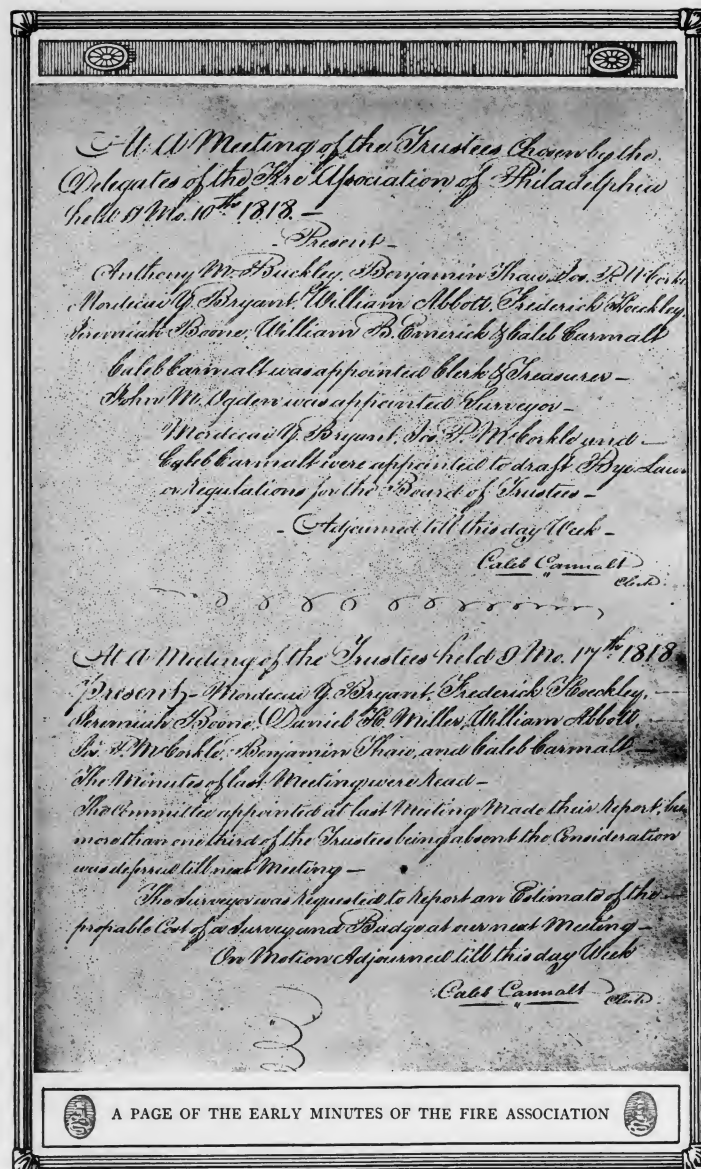 At a Meeting of the Trustees Chosen by the
Delegates of the Fire Association of Philadelphia
held 9 Mo. 10th 1818.—
- Present -
Anthony M. Buckley, Benjamin Thaw, Jos. P. McCorkle
Mordecai Y. Bryant, William Abbott, Frederick Hoeckley,
Jeremiah Boone, William B. Emerick & Caleb Carmalt
Caleb Carmalt was appointed Clerk & Treasurer—
John M. Ogden was appointed Surveyor—
Mordecai Y. Bryant, Jos. P. McCorkle and—
Caleb Carmalt were appointed to draft Bye Laws
or regulations for the Board of Trustees—
- Adjourned till this day Week -
Caleb Carmalt
Clerk
At a Meeting of the Trustees held 9 Mo. 17th 1818
Present,- Mordecai Y. Bryant, Frederick Hoeckley,
Jeremiah Boone, Daniel H. Miller, William Abbott
Jos. P. McCorkle, Benjamin Thaw, and Caleb Carmalt—
The Minutes of last Meeting were Read—
The Committee appointed at last Meeting Made their Report, but
more than one third of the Trustees being absent the Consideration
was deferred till next Meeting—
The Surveyor was Requested to Report an Estimate of the
propable Cost of a Survey and Badge at our next Meeting—
On Motion Adjourned till this day Week
Caleb Carmalt
Clerk
A PAGE OF THE EARLY MINUTES OF THE FIRE ASSOCIATION